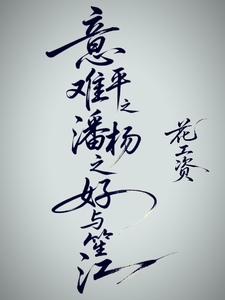 意难平之潘杨之好与笙江
花工资